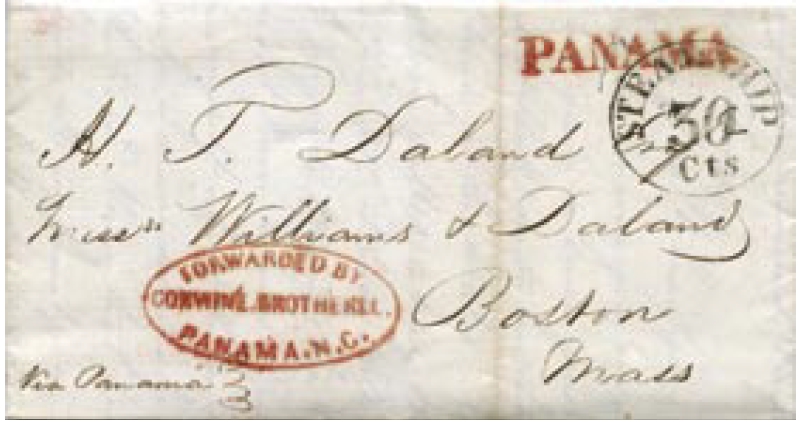 PANAMA
STEAMSHIP
30
Cts
H. T. Daland
Messrs Williams & Daland
FORWARDED BY
CORWINE.BROTHER&C.
PANAMA.N.G.
Boston
Mass
Via Panama